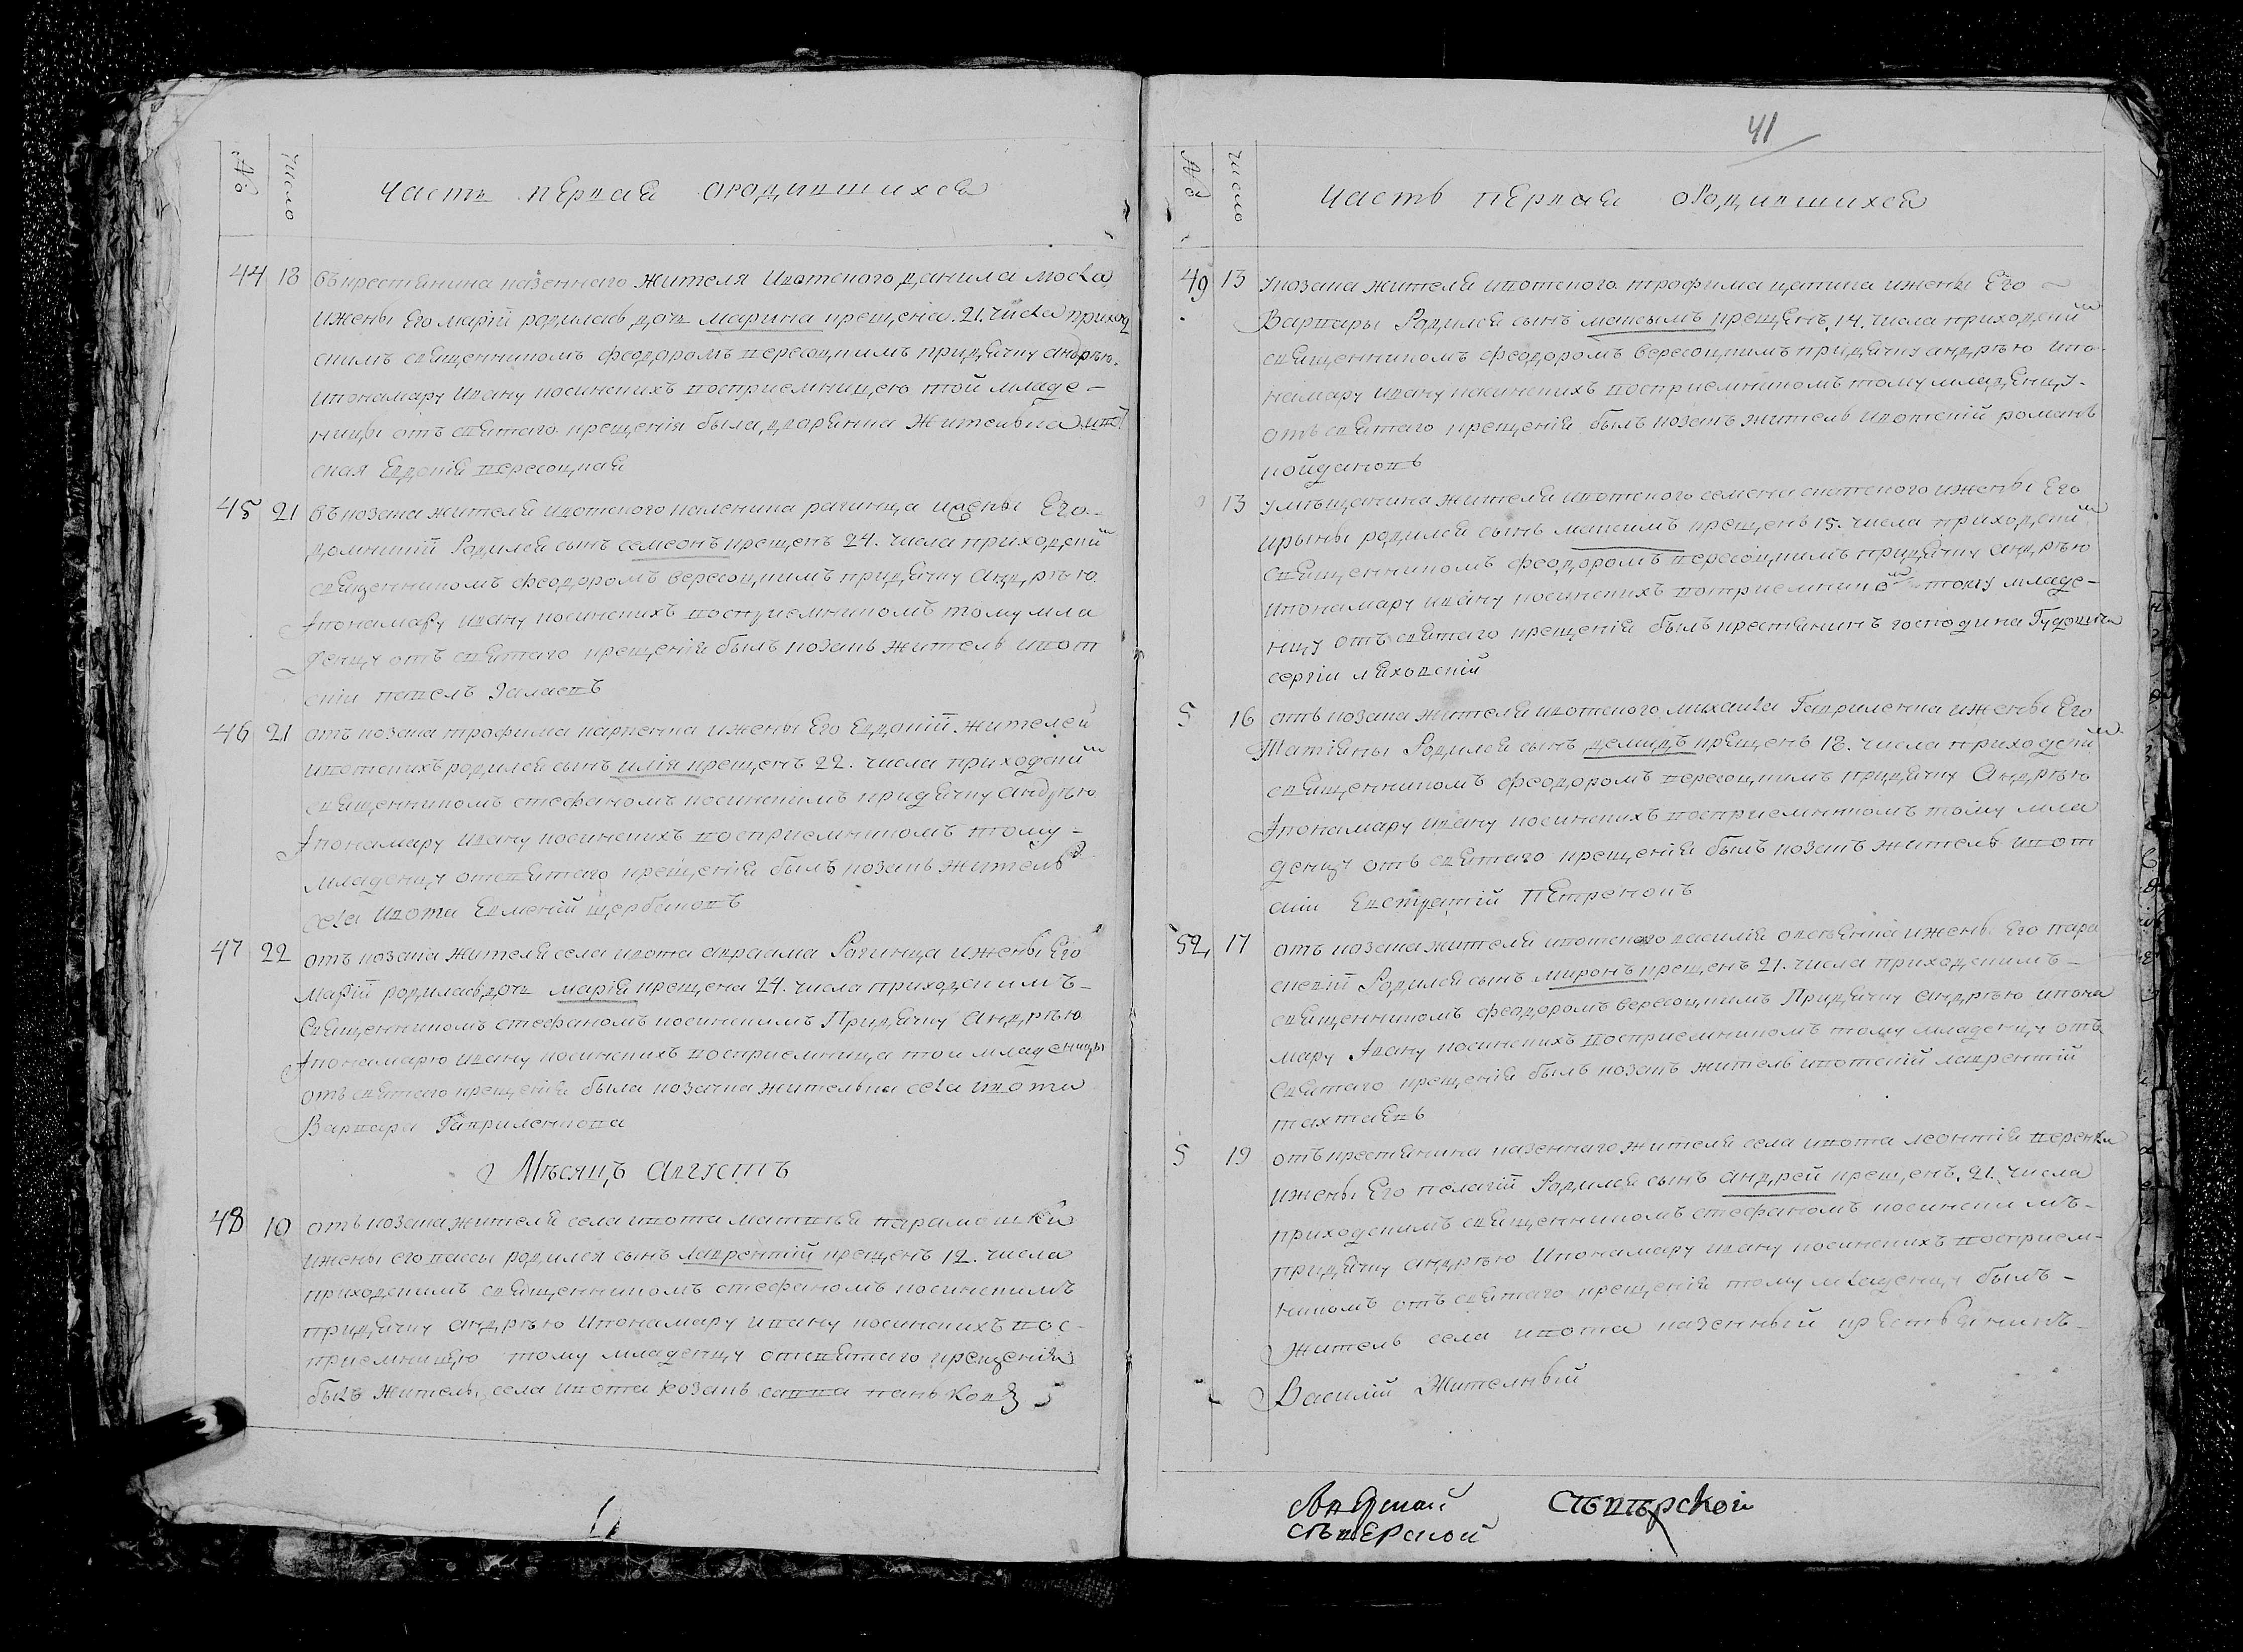 №
Число
Часть первая ородившихся
44 18 Въ крестянина казеннаго жителя Ивотского данила моска
ижены Его марїй родилась дочь марина крещена 21. числа приход
скимъ священникомъ феодоромъ вересоцкимъ при дячку андрѣю
ипонамару ивану косинскихъ восприемницею той младе-
ницы отъ святаго крещенія была дворянка жителька ивот
ская Евдокія вересоцкая
45 21 Въ козака жителя ивотского рагинца ижены Его
домникій Родился сынъ семеонъ крещенъ 24. числа приходский
священникомъ феодоромъ вересоцкимъ при дячку андрѣю
Ипонамару ивану косинскихъ восприемникомъ тому мла
денцу отъ святаго крещенія былъ козакъ житель ивот
скіи павелъ
46 21 отъ козака трофима карпенка ижены Его Евдокій жителей
ивотскихъ родился сынъ илія крещенъ 22. числа приходский
священникомъ стефаномъ косинскимъ при дячку андрѣю
Ипонамару ивану косинскихъ восприемникомъ тому-
младенцу отсвятаго крещенія былъ козакъ житель
села ивота Евменій щербаковъ
47 22 отъ козака жителя села ивота авраама Рагинца ижены Его
марїй родилась дочь марія крещена 24. числа приходскимъ-
Священникомъ стефаномъ косинскимъ При дячку Андрѣю
Ипонамарю ивану косинскихъ восприемница тои младеницы
отъ святаго крещенія была козачка жителька села ивота
Варвара Гавриленкова
Мѣсяцъ августъ
48 10 отъ козака жителя села ивота матвѣя
ижены его вассы родился сынъ лаврентій крещенъ 12. числа
приходскимъ священникомъ стефаномъ косинскимъ
при дячку андрѣю Ипонамару ивану косинскихъ вос-
приемницею тому младенцу отсвятаго крещенія
былъ житель села ивота козакъ савва
41
№
Число
Часть первая оРодившихся
49 13 Укозака жителя ивотского трофима цапика ижены Его
Варвары Родился сынъ максымъ крещенъ 14. числа приходский
священникомъ феодоромъ вересоцкимъ при дячку андрѣю ипо
намару ивану косинскихъ восприемникомъ тому младенцу-
отъ святаго крещенія былъ козакъ житель Ивотскій романъ
койдановъ
13 Умѣщанина жителя ивотского семена ижены Его
ирыны родился сынъ максимъ крещенъ 15. числа приходский
Священникомъ феодоромъ вересоцкимъ при дячку андрѣю
ипонамару ивану косинскихъ вотприемнико тому младе-
нцу отъ святаго крещенія былъ крестянинъ господина Гудовича
сергіи ляховскій
5 16 отъ козака жителя ивотского михаила Гавриленка ижены Его
Татіяны Родился сынъ демидъ крещенъ 18. числа приходский
священникомъ феодоромъ вересоцкимъ при дячку Андрѣю
Ипонамару ивану косинскихъ восприемникомъ тому мла
денцу отъ святаго крещенія былъ козакъ житель ивот
скіи Евстратій Петренокъ
52, 17 отъ козака жителя ивотского василія ижены Его пара
скевій Родился сынъ миронъ крещенъ 21. числа приходскимъ-
священникомъ феодоромъ вересоцкимъ При дячку андрѣю ипона
мару Ивану косинскихъ восприемникомъ тому младенцу отъ
Святаго крещенія былъ козакъ житель ивотскій лаврентій
тахтаевъ
5 19 отъ крестянина казеннаго жителя села ивота леонтія
ижены Его пелагій Родился сынъ андрей крещенъ 21. числа
приходскимъ священникомъ стефаномъ косинскимъ-
при дячку андрѣю Ипонамару ивану косинскихъ восприем-
никомъ отъ святаго крещенія тому младенцу былъ-
житель села ивота казенный крестьянинъ-
Василій Жителный